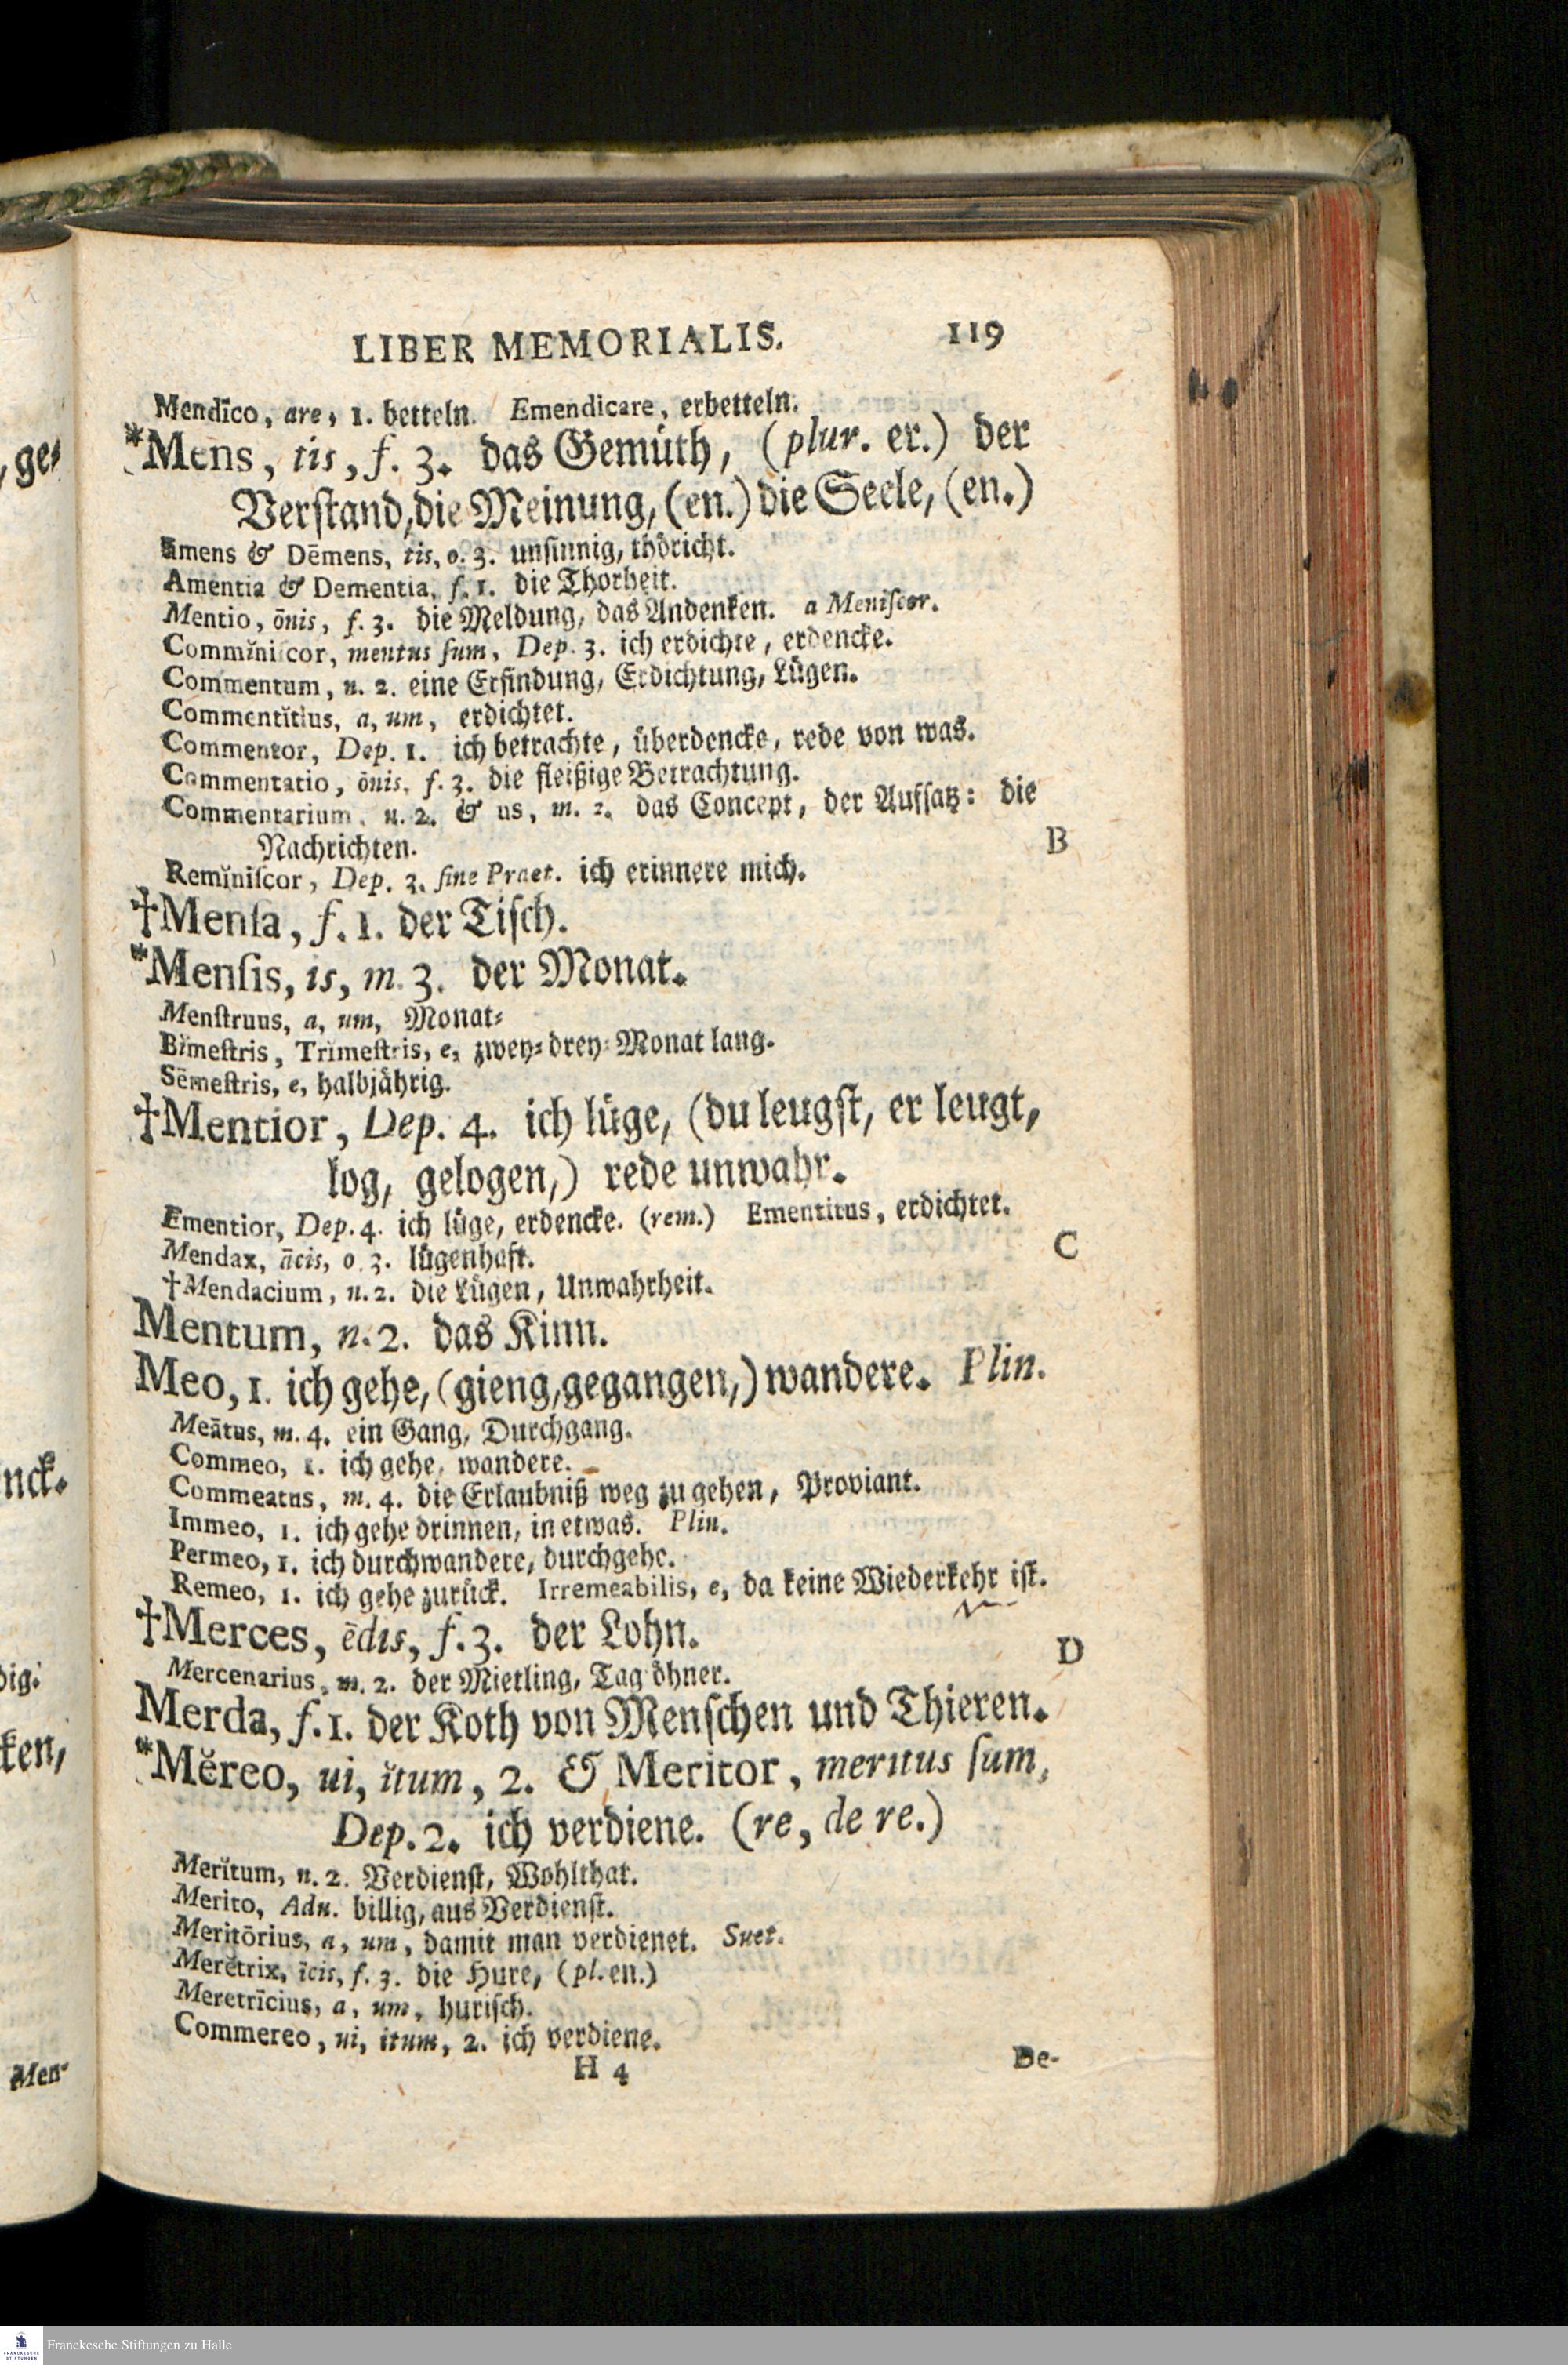 LIBER MEMORIALIS. 119
Mendīco, are, 1. betteln. Emendicare, erbetteln.
*Mens, tis, f. 3. das Gemüth, (plur. er.) der
Verſtand, die Meinung, (en.) die Seele, (en.)
Amens & Dēmens, tis, o. 3. unſinnig, thöricht.
Amentia & Dementia, f. 1. die Thorheit.
Mentio, ōnis, f. 3. die Meldung, das Andenken. a Meniſcor.
Commĭniſcor, mentus ſum, Dep. 3. ich erdichte, erdencke.
Commentum, n. 2. eine Erfindung, Erdichtung, Lügen.
Commentĭtius, a, um, erdichtet.
Commentor, Dep. 1. ich betrachte, überdencke, rede von was.
Commentatio, ōnis, f. 3. die fleißige Betrachtung.
Commentarium, n. 2. & us, m. 2. das Concept, der Aufſatz: die
Nachrichten.
B
Remĭniſcor, Dep. 3. ſine Praet. ich erinnere mich.
†Menſa, f. 1. der Tiſch.
*Menſis, is, m. 3. der Monat.
Menſtruus, a, um, Monat⸗
Bĭmeſtris, Trĭmeſtris, e, zwey⸗drey⸗Monat lang.
Sēmeſtris, e, halbjährig.
†Mentior, Dep. 4. ich lüge, (du leugſt, er leugt,
log, gelogen,) rede unwahr.
Ementior, Dep. 4. ich lüge, erdencke. (rem.) Ementitus, erdichtet.
C
Mendax, ācis, o. 3. lügenhaft.
†Mendacium, n. 2. die Lügen, Unwahrheit.
Mentum, n. 2. das Kinn.
Meo, 1. ich gehe, (gieng, gegangen,) wandere. Plin.
Meātus, m. 4. ein Gang, Durchgang.
Commeo, 1. ich gehe, wandere.
Commeatus, m. 4. die Erlaubniß weg zu gehen, Proviant.
Immeo, 1. ich gehe drinnen, in etwas. Plin.
Permeo, 1. ich durchwandere, durchgehe.
Remeo, 1. ich gehe zurück. Irremeabilis, e, da keine Wiederkehr iſt.
†Merces, ēdis, f. 3. der Lohn.
D
Mercenarius, m. 2. der Mietling, Tag öhner.
Merda, f. 1. der Koth von Menſchen und Thieren.
*Mĕreo, ui, ĭtum, 2. & Meritor, meritus ſum,
Dep. 2. ich verdiene. (re, de re.)
Merĭtum, n. 2. Verdienſt, Wohlthat.
Merito, Adu. billig, aus Verdienſt.
Meritōrius, a, um, damit man verdienet. Suet.
Merĕtrix, īcis, f. 3. die Hure, (pl. en.)
Meretrīcius, a, um, huriſch.
Commereo, ui, itum, 2. ich verdiene.
H 4 De-
, ge⸗
nck.
dig.
ken,
Men-
Franckesche Stiftungen zu Halle